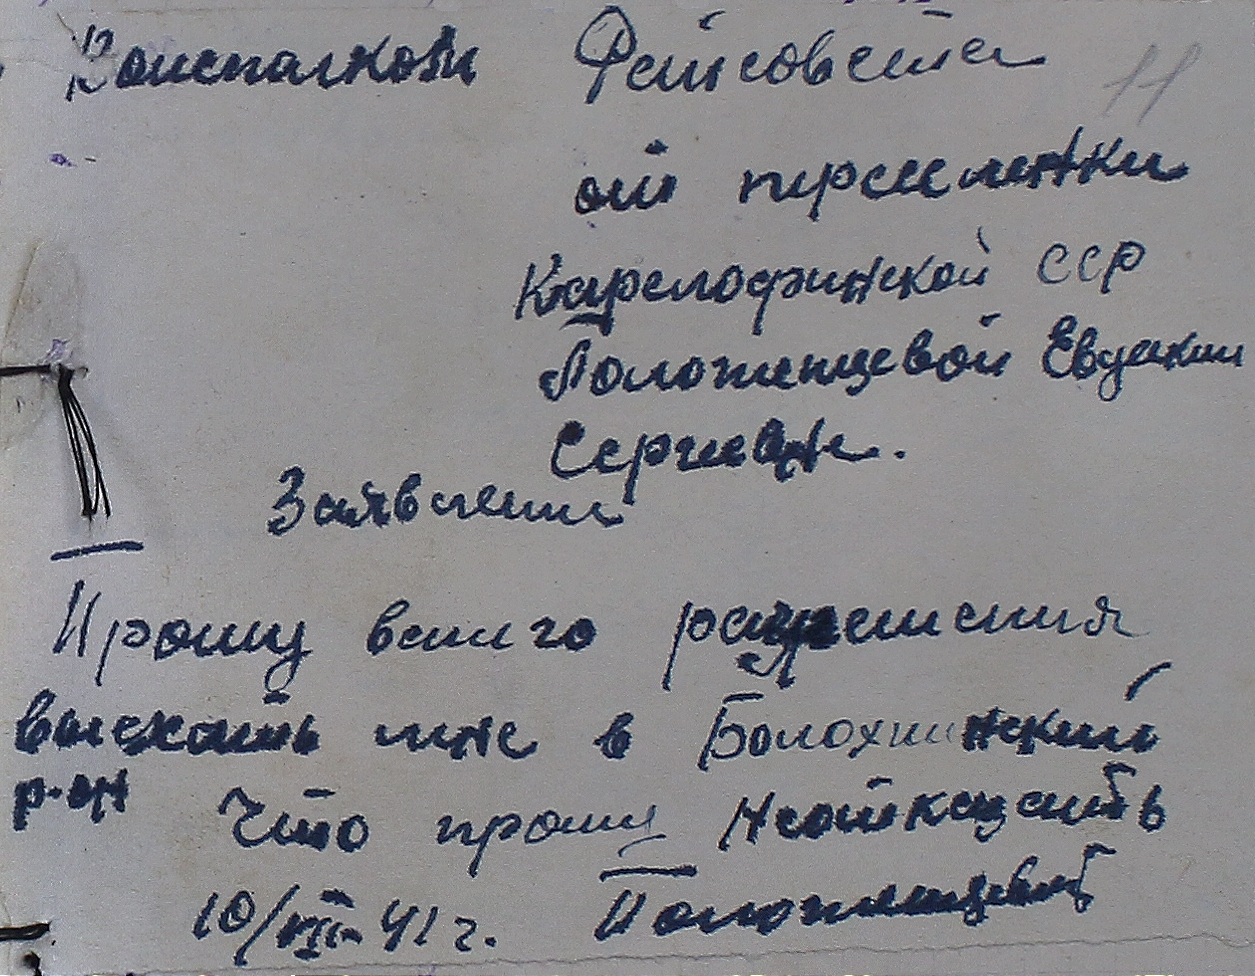 В исполком Райсовета
11
от переселенки
Карелофинской ССР
Положенцевой Евдокии
Сергеевне.
Заявление
Прошу вашего разрешения
выехать мне в Болохнинский
р-он
Что прошу неотказать
10/VIII-41 г. Положенцева